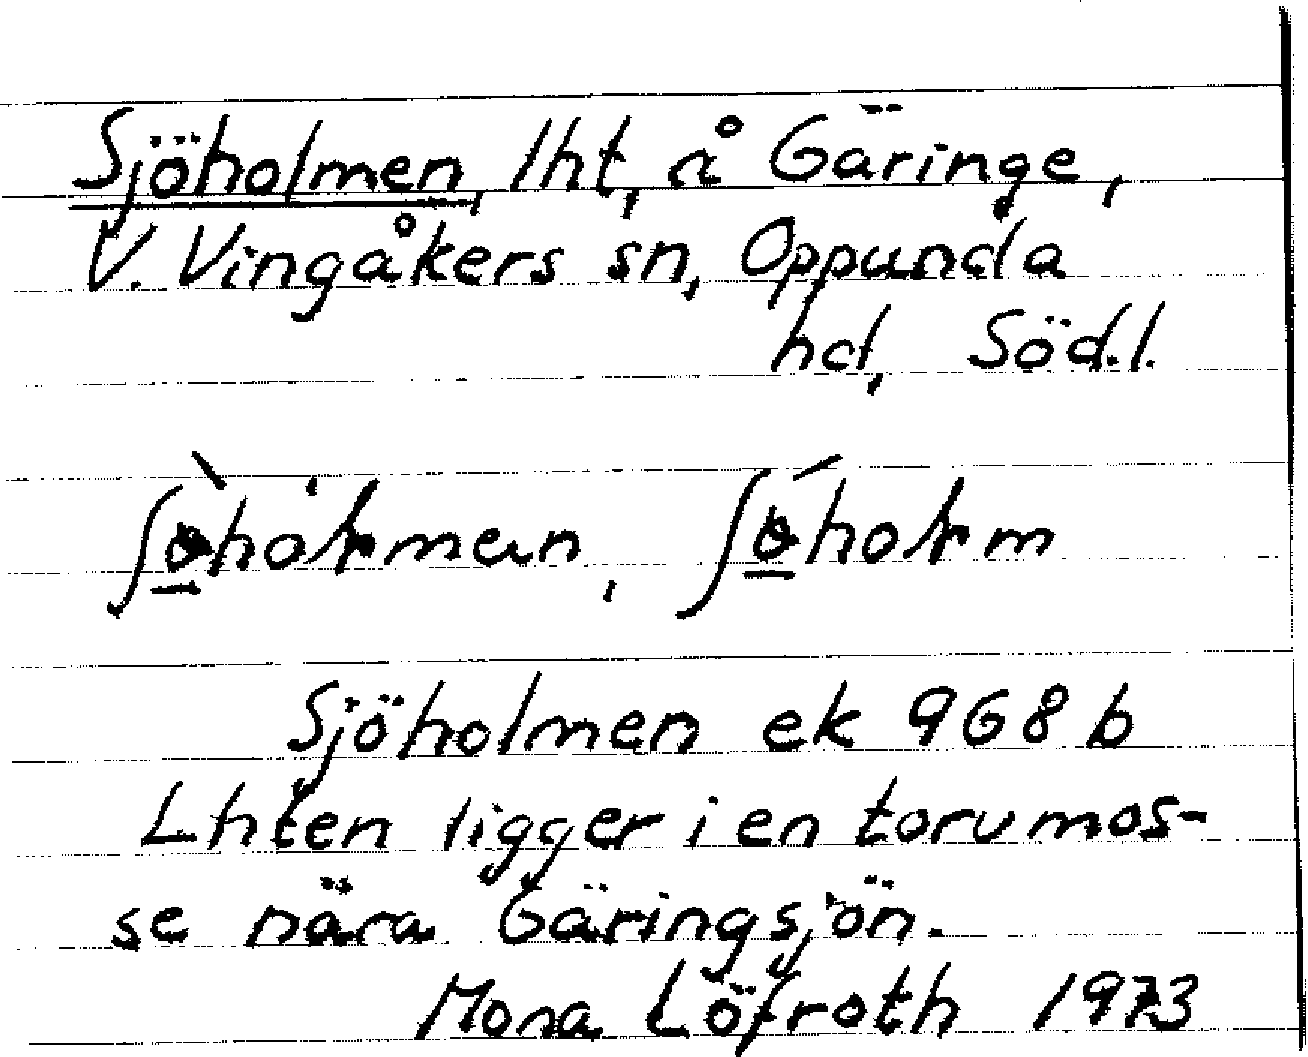 Sjöholmen, lht, å Gäringe,
V. Vingåkers sn, Oppunda
hd, Söd.l.
Sjöholmen ek 968 b
Lhten ligger i en torvmos-
se nära Gäringsjön.
Mona Löfroth 1973